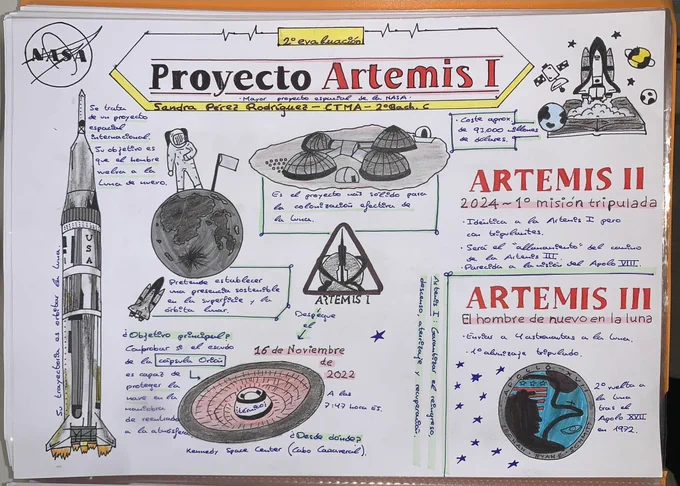 NASA
2º evaluación
Proyecto Artemis I
· Mayor proyecto espacial de la NASA ·
Sandra Pérez Rodríguez - CTMA - 2º Bach. C
Se trata
de un proyecto
espacial
internacional.
Su objetivo es
que el hombre
vuelva a la
Luna de nuevo.
· Coste aprox
de 93.000 millones
de dólares.
Es el proyecto más sólido para
la colonización efectiva de
la Luna.
USA
Su trayectoria es orbitar la luna.
Pretende establecer
una presencia sostenible
en la superficie y la
órbita lunar.
ARTEMIS I
¿Objetivo principal?
Comprobar si el escudo
de la cápsula Orión
es capaz de
proteger la
nave en la
maniobra
de reentrada
a la atmósfera
Despegue
el
16 de Noviembre
de
2022
A las
7:47 hora ES.
¿Desde dónde?
Kennedy Space Center (Cabo Cañaveral).
Artemis I: Garantizar el reingreso,
descenso, aterrizaje y recuperación.
ARTEMIS II
2024 ~ 1º misión tripulada
· Idéntica a la Artemis I pero
con tripulantes.
· Será el "allanamiento" del camino
de la Artemis III.
· Parecida a la misión del Apolo VIII.
ARTEMIS III
El hombre de nuevo en la luna
· Enviar a 4 astronautas a la luna.
· 1º alunizaje tripulado.
APOLLO XVII
CERNAN EVANS SCHMITT
2º vuelta a
la luna
tras el
Apolo XVII
en 1972.